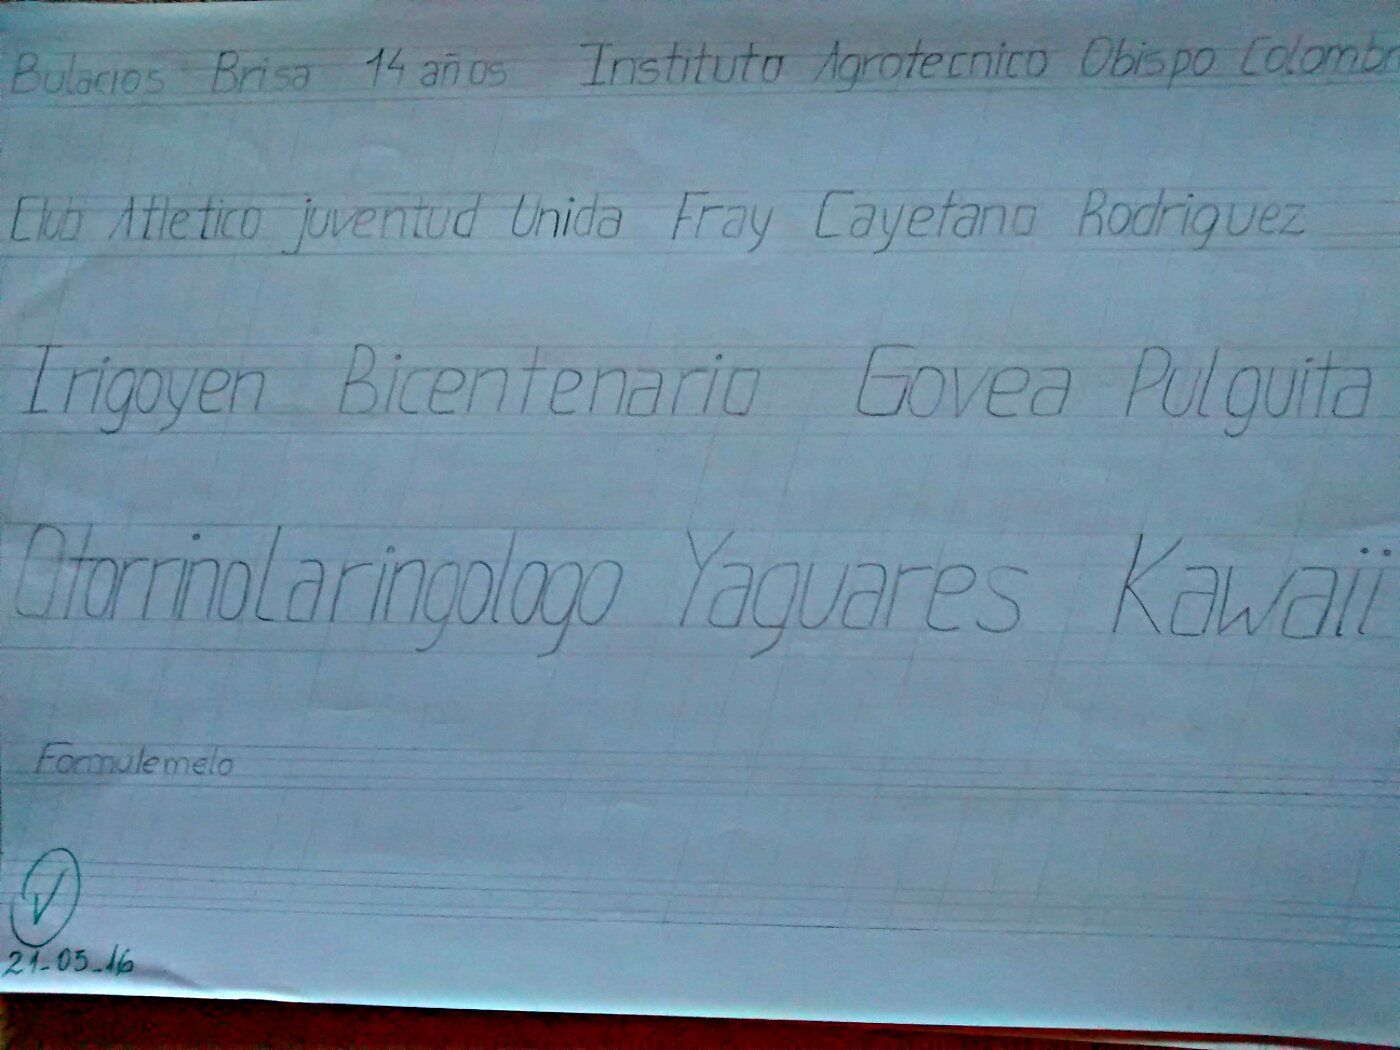 Bulacios Brisa 14 años Instituto Agrotecnico Obispo Colombr
Club Atletico juventud Unida Fray Cayetano Rodriguez
Irigoyen Bicentenario Govea Pulguita
Otorrinolaringologo Yaguares Kawaii
Formulemelo
21-05-16